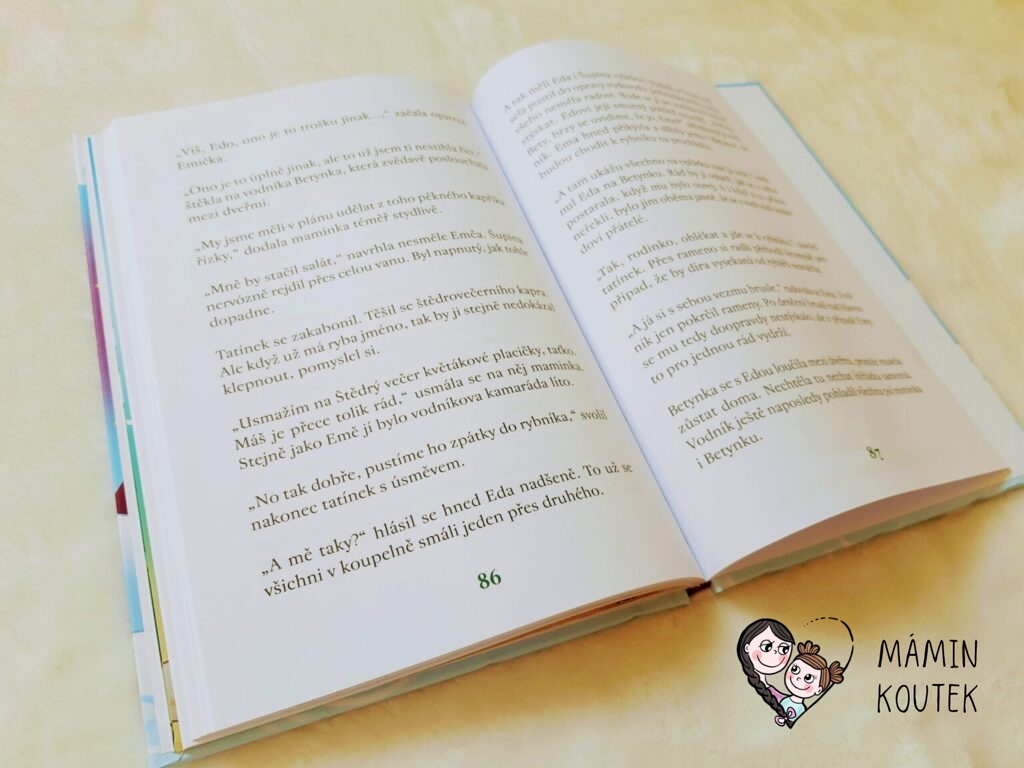 „Víš, Edo, ono je to trošku jinak...,“ začala opatrně
Emička.
„Ono je to úplně jinak, ale to už jsem ti nestihla říct,“
štěkla na vodníka Betynka, která zvědavě poslouchala
mezi dveřmi.
„My jsme měli v plánu udělat z toho pěkného kapříka
řízky,“ dodala maminka téměř stydlivě.
„Mně by stačil salát,“ navrhla nesměle Emča. Šupina
nervózně rejdil přes celou vanu. Byl napnutý, jak tohle
dopadne.
Tatínek se zakabonil. Těšil se štědrovečerního kapra.
Ale když už má ryba jméno, tak by ji stejně nedokázal
klepnout, pomyslel si.
„Usmažím na Štědrý večer květákové placičky, taťko.
Máš je přece tolik rád,“ usmála se na něj maminka.
Stejně jako Emě jí bylo vodníkova kamaráda líto.
„No tak dobře, pustíme ho zpátky do rybníka,“ svolil
nakonec tatínek s úsměvem.
„A mě taky?“ hlásil se hned Eda nadšeně. To už se
všichni v koupelně smáli jeden přes druhého.
86
A tak měli Eda i Šupina
sela pustil do opravy vodovodu.
všeho neměla radost. Bude se jí po
stýskat. Edovi její smutný pohled
Bety, brzy se uvidíme, že jo, Emo?
ník. Ema hned přikývla a slíbila
budou chodit k rybníku na procházku.
„A tam ukážu všechnu
nul Eda na Betynku. Rád by jí
postarala, když mu bylo ouvej. A i když si to
neřekli, bylo jim oběma jasné, že se z nich stali
doví přátelé.
„Tak, rodinko, oblékat a jde se k rybníku,“
tatínek. Přes rameno si radši přehodil krumpáč pro
případ, že by díra vysekaná od rybářů
„A já si s sebou vezmu brusle,“ radovala se Ema. Vod-
ník jen pokrčil rameny. Po
se mu tedy doopravdy nestýskalo, ale v případě Emy
to pro jednou rád vydrží.
Betynka se s Edou loučila mezi dveřmi, protože musela
zůstat doma. Nechtěla na
Vodník ještě naposledy pohladil
i Betynku.
87
MÁMIN
KOUTEK